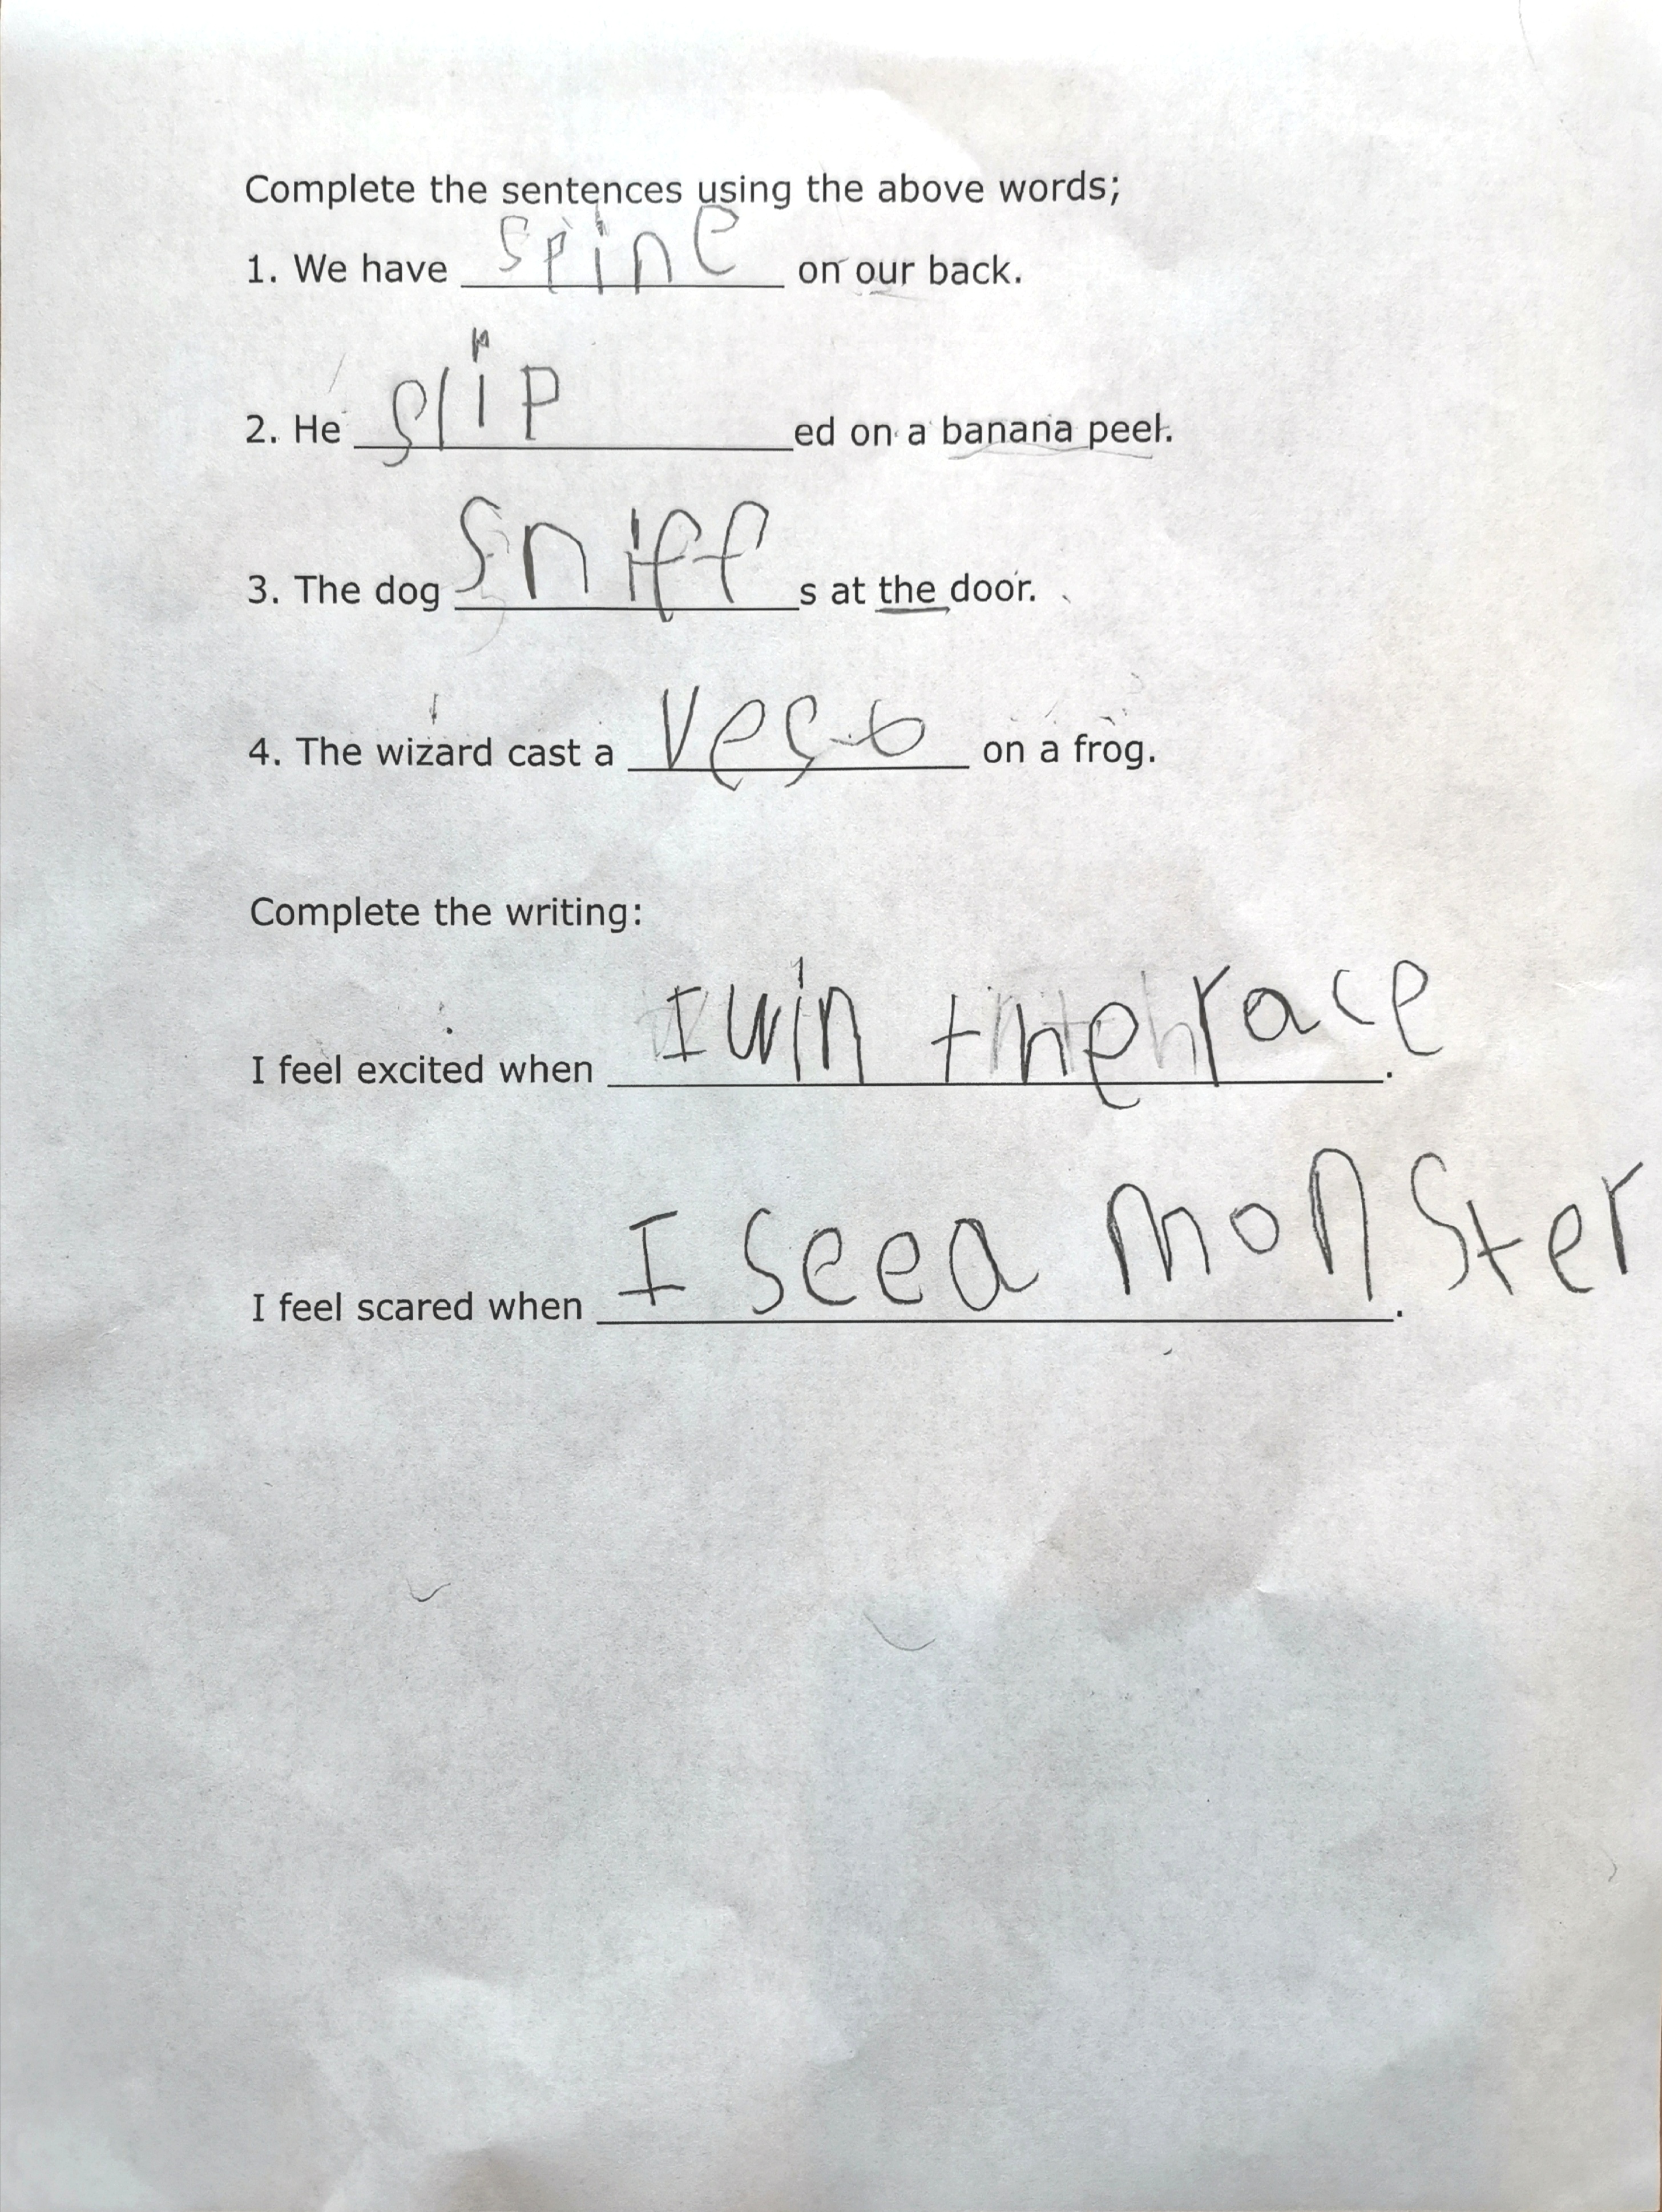 Complete the sentences using the above words;
1. We have spine on our back.
2. He slip ed on a banana peel.
3. The dog sniff s at the door.
4. The wizard cast a on a frog.
Complete the writing:
I feel excited when I win the race.
I feel scared when I see a monster.